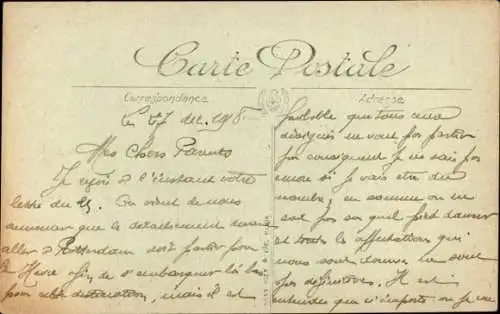 Carte Postale
Correspondance
Adresse
Le 27 dec. 1918
Mes Chers Parents
Je reçois à l'instant votre
lettre du 25. On vient de nous
annoncer que le détachement devant
aller à Rotterdam doit partir pour
le Havre afin de s'embarquer là bas
pour cette destination, mais il est
probable que tous ceux
désignés ne vont pas partir
par conséquent je ne sais pas
encore si je vais être du
nombre, en somme on ne
sait pas sur quel pied danser
et toutes les affectations qui
nous sont données ne sont
pas définitives. Il est
entendu que n'importe où je